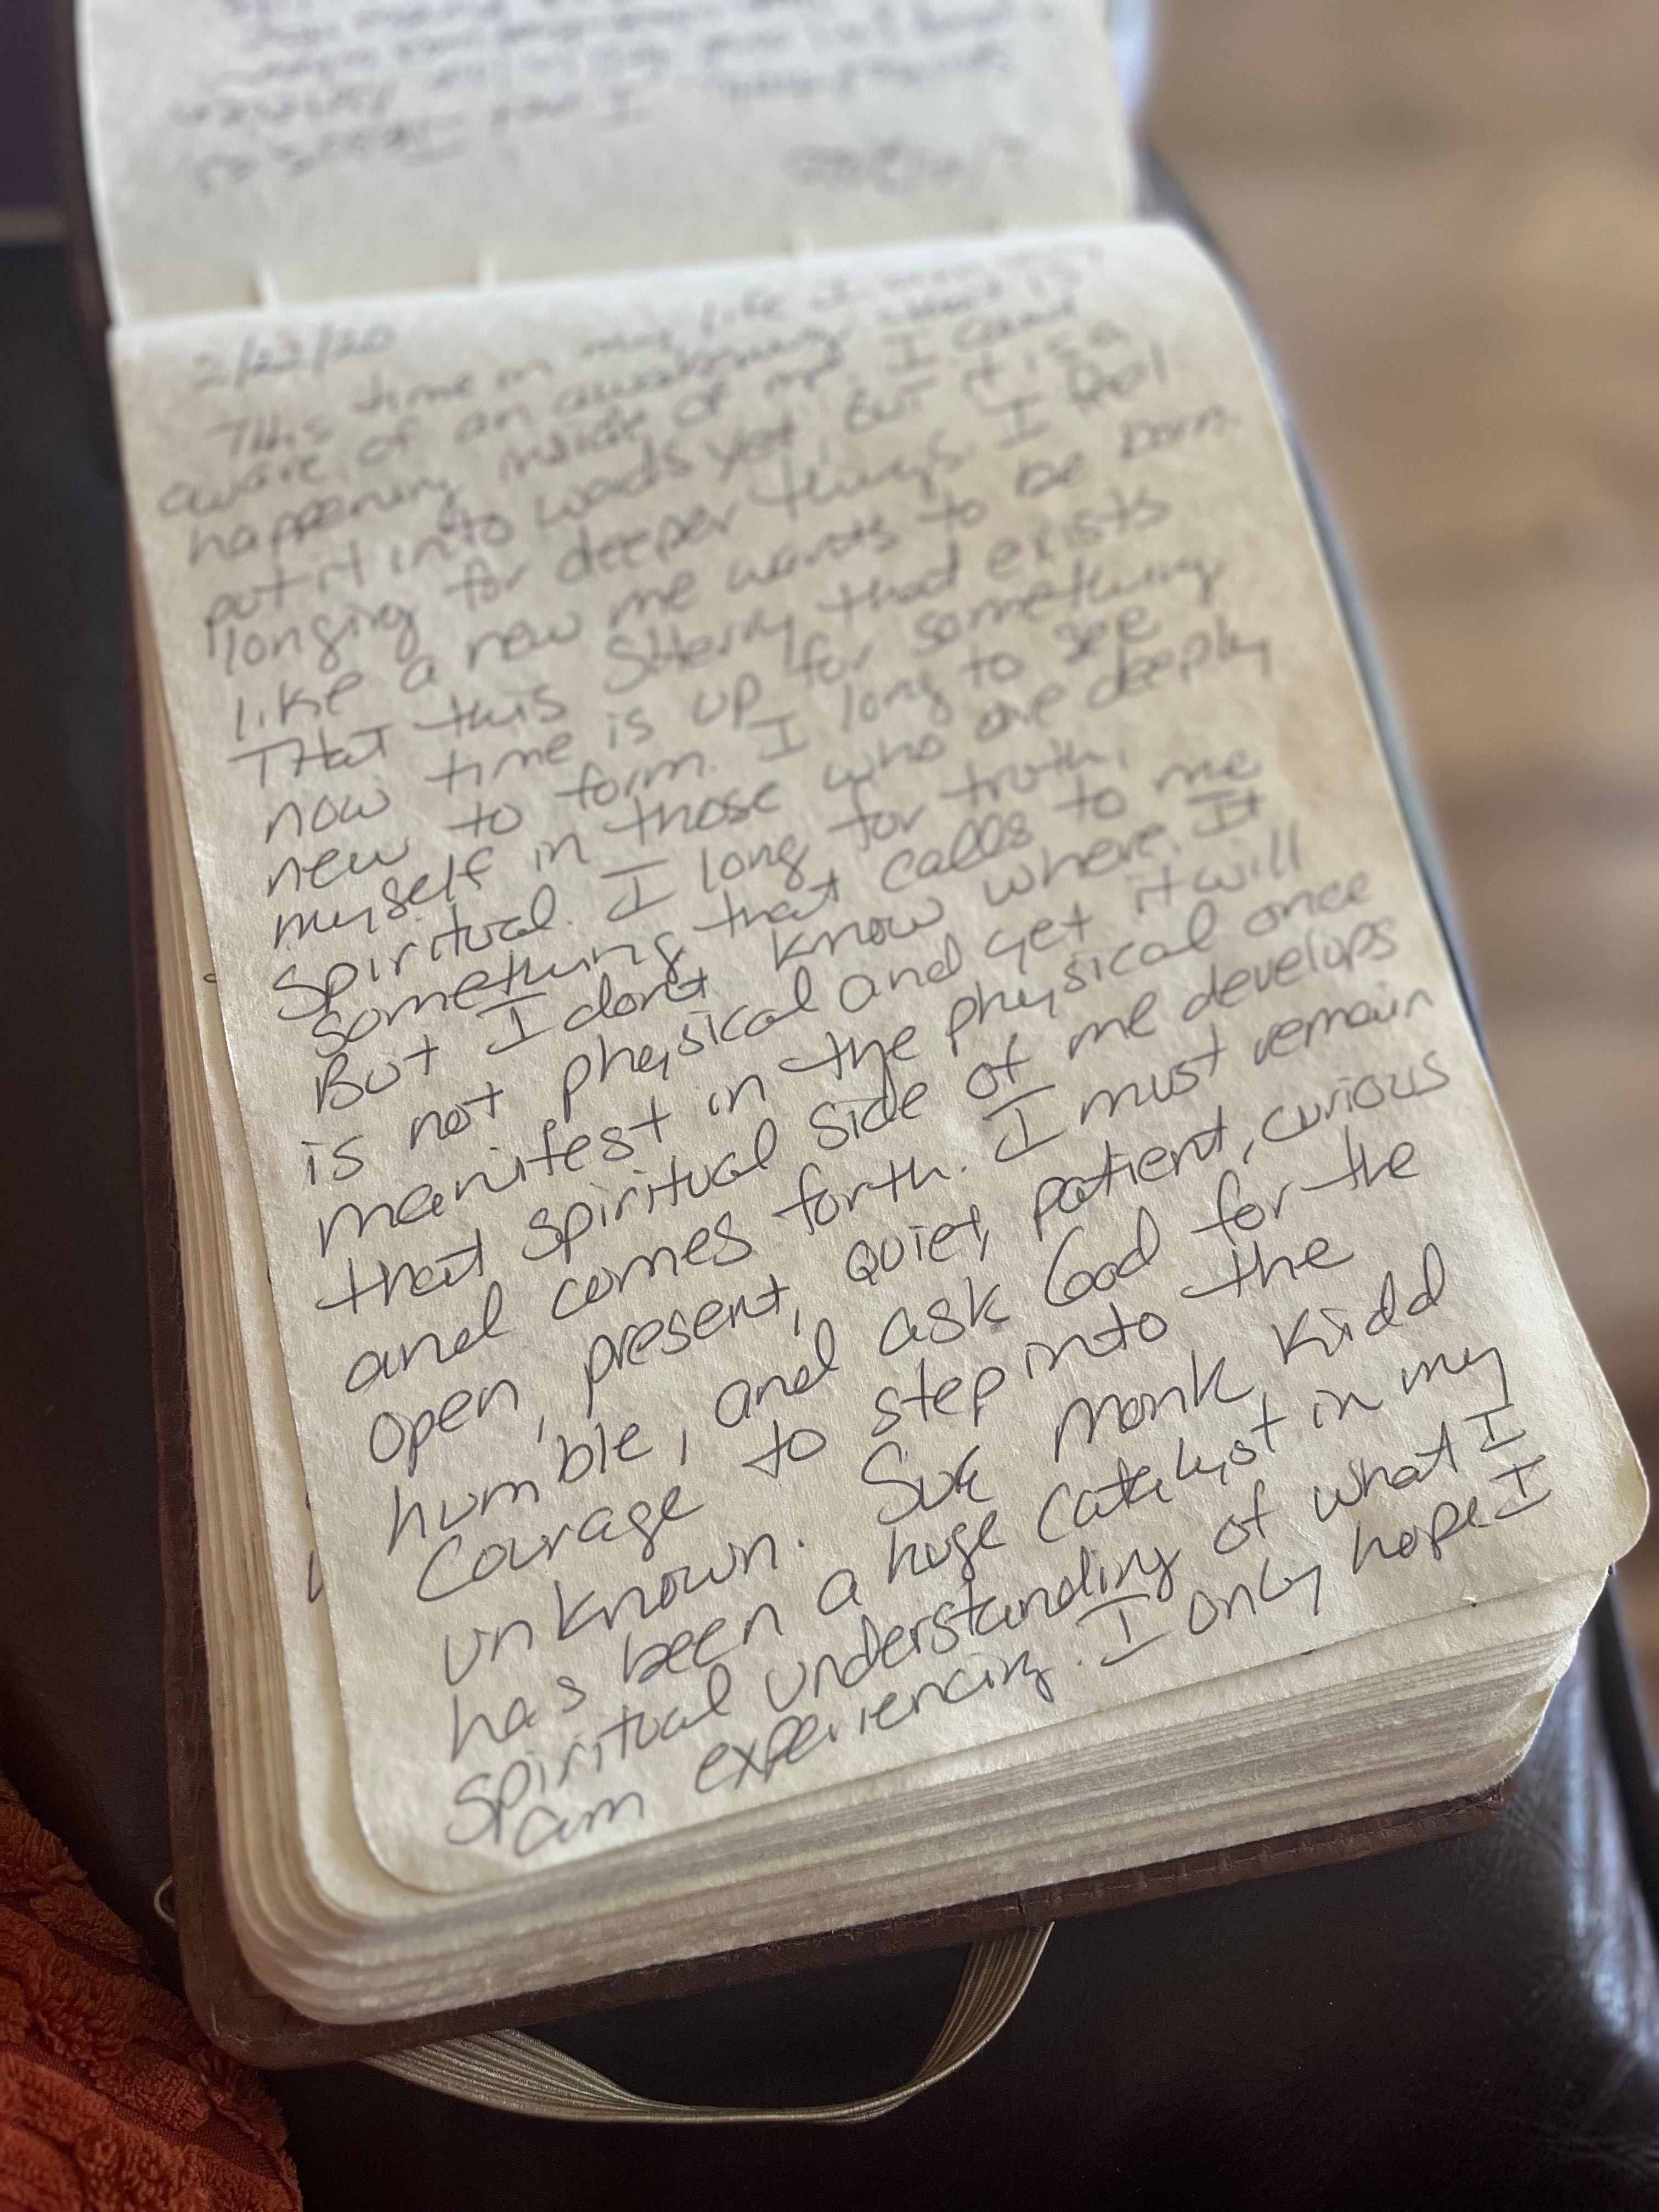 2/22/20
This time in my life I
aware of an awakening that is
happening inside of me. I cant
put it into words yet, But it is a
longing for deeper things. I feel
like a new me wants to be born.
THat this SHerry that exists
now time is up for something
new to form. I long to see
myself in those who are deeply
Spiritual. I long for truth,
something that calls to me
But I don't know where. It
is not physical and yet it will
manifest in the physical once
that spiritual side of me develops
and comes forth. I must remain
open, present, quiet, patient, curious
humble, and ask God for the
Courage to step into the
unknown. Sue Monk Kidd
has been a huge catalyst in my
spiritual understanding of what I
am experiencing. I only hope I